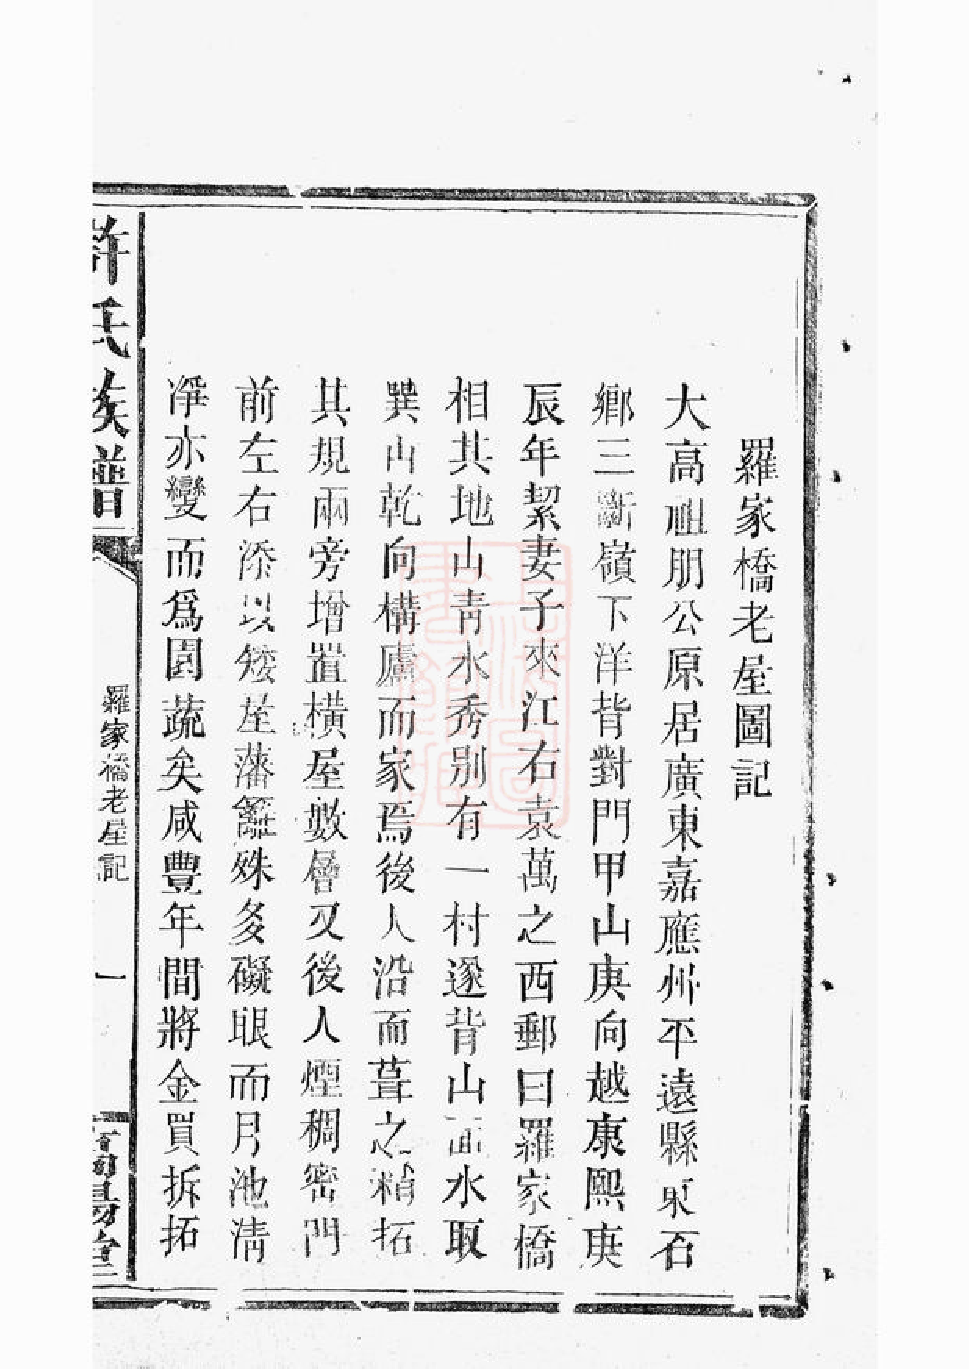 羅家橋老屋圖記
大高祖朋公原居廣東嘉應州平遠縣東石
鄉三斷嶺下洋背對門甲山庚向越康熙庚
辰年絜妻子來江右袁萬之西郵曰羅家橋
相其地山靑水秀別有一村遂背山面水取
巽山乾向構廬而家焉後人沿而葺之稍拓
其規兩旁增置橫屋數層又後人煙稠密門
前左右添以矮垣藩籬殊多礙眼而月池淸
凈亦變而爲園蔬矣咸豐年間將金買拆拓
許氏族譜
羅家橋老屋記
一
高陽堂